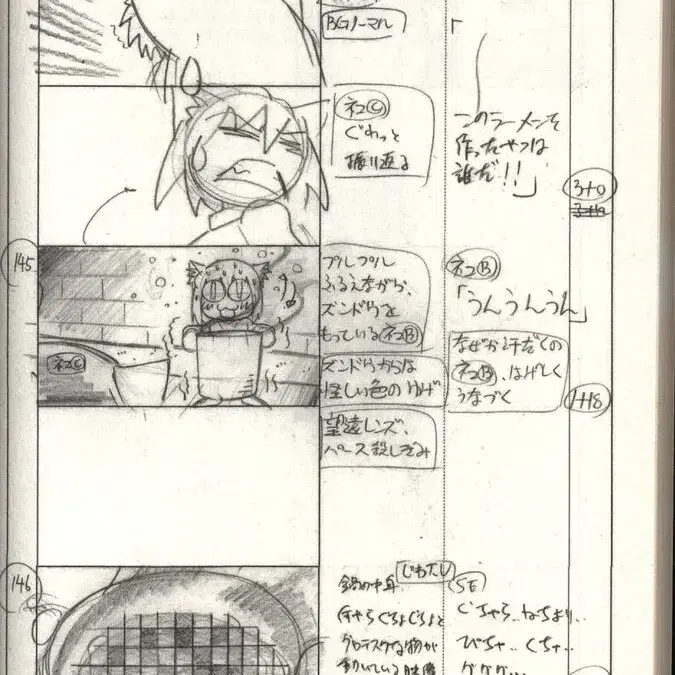 BGノーマル
「
ネコⒸ
ぐわっと
振り返る
このラーメンを
作ったやつは
誰だ!!」
3+0
145
プルプル
ふるえながら、
ズンドウを
もっているネコⒷ
ズンドウからは
怪しい色のゆげ
望遠レンズ、
パース殺しぎみ
ネコⒷ
「うんうんうん」
なぜか汗だくの
ネコⒷ、はげしく
うなづく
ネコⒸ
1+18
146
じわたし
鍋の中身
何やらぐちょぐちょと
グロテスクな物が
動いている
(SE)
ぐちゃら‥ねちょり‥
びちゃ‥くちゃ‥
ググググ…